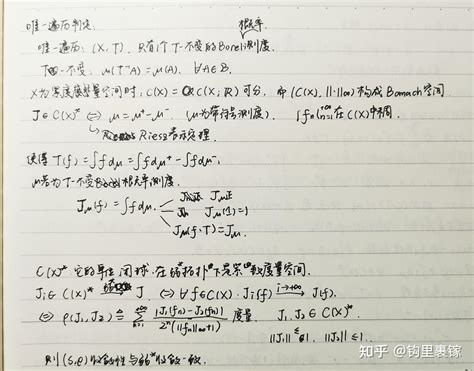 唯一遍历判定:
概率
唯一遍历: (X, T). 只有1个 T-不变的Borel测度.
T-不变: μ(T⁻¹A) = μ(A), ∀A∈B.
X为紧度量空间时, C(X) = C(X; R) 可分. 即 (C(X), ||·||) 构成 Banach 空间
J ∈ C(X)* ⇔ μ = μ⁺ - μ⁻. (μ为带符号测度). {fn}ₙ₌₁^{+∞} 在 C(X) 中稠.
Riesz表示定理.
使得 J(f) = ∫f dμ = ∫f dμ⁺ - ∫f dμ⁻.
μ若为T-不变Borel概率测度.
Jμ正
Jμ(f) = ∫f dμ. Jμ(1)=1
Jμ(f∘T) = Jμ
C(X)* 它的单位闭球. 在弱*拓扑下是紧度量空间.
Ji ∈ C(X)* → J ⇔ ∀f∈C(X). Ji(f) →(i→+∞) J(f).
⇔ ρ(J₁, J₂) ≜ Σₙ₌₁^{+∞} |J₁(fn) - J₂(fn)| / 2ⁿ(||fn||∞+1) 度量. J₁, J₂ ∈ C(X)*.
||J₁|| ≤ 1, ||J₂|| ≤ 1.
则 ρ收敛性与弱*收敛一致.
知乎 @钩里裹镓